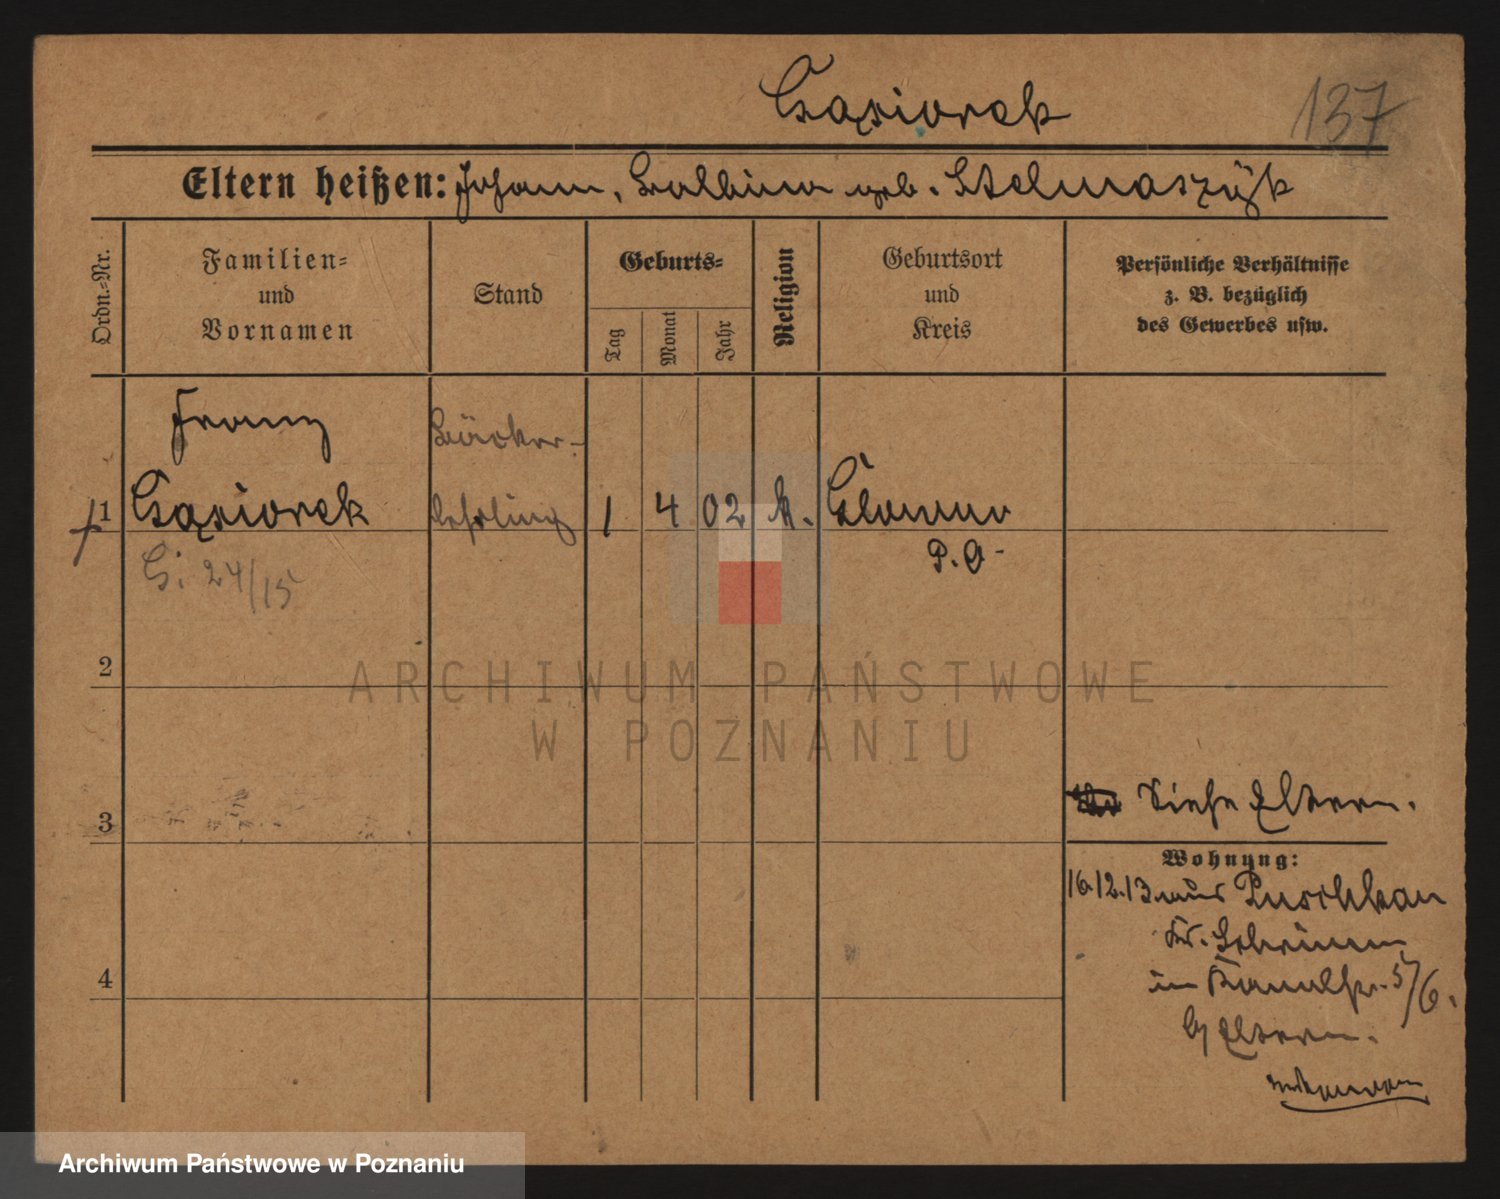 Gąsiorek
137
Eltern heißen: Johann, Balbina geb. Stelmaszyk
Ordn.-Nr.
Familien-
und
Vornamen
Stand
Geburts-
Tag
Monat
Jahr
Religion
Geburtsort
und
Kreis
Persönliche Verhältnisse
z. B. bezüglich
des Gewerbes usw.
Franz
Bäcker-
1
Gąsiorek
lehrling
1
4
02
k.
P. O-
24/15
2
ARCHIWUM PAŃSTWOWE
W POZNANIU
3
Siehe Eltern.
Wohnung:
16.12.13. aus
Kr. Schrimm
in Kanalstr. 5/6.
b/ Eltern.
4
Archiwum Państwowe w Poznaniu